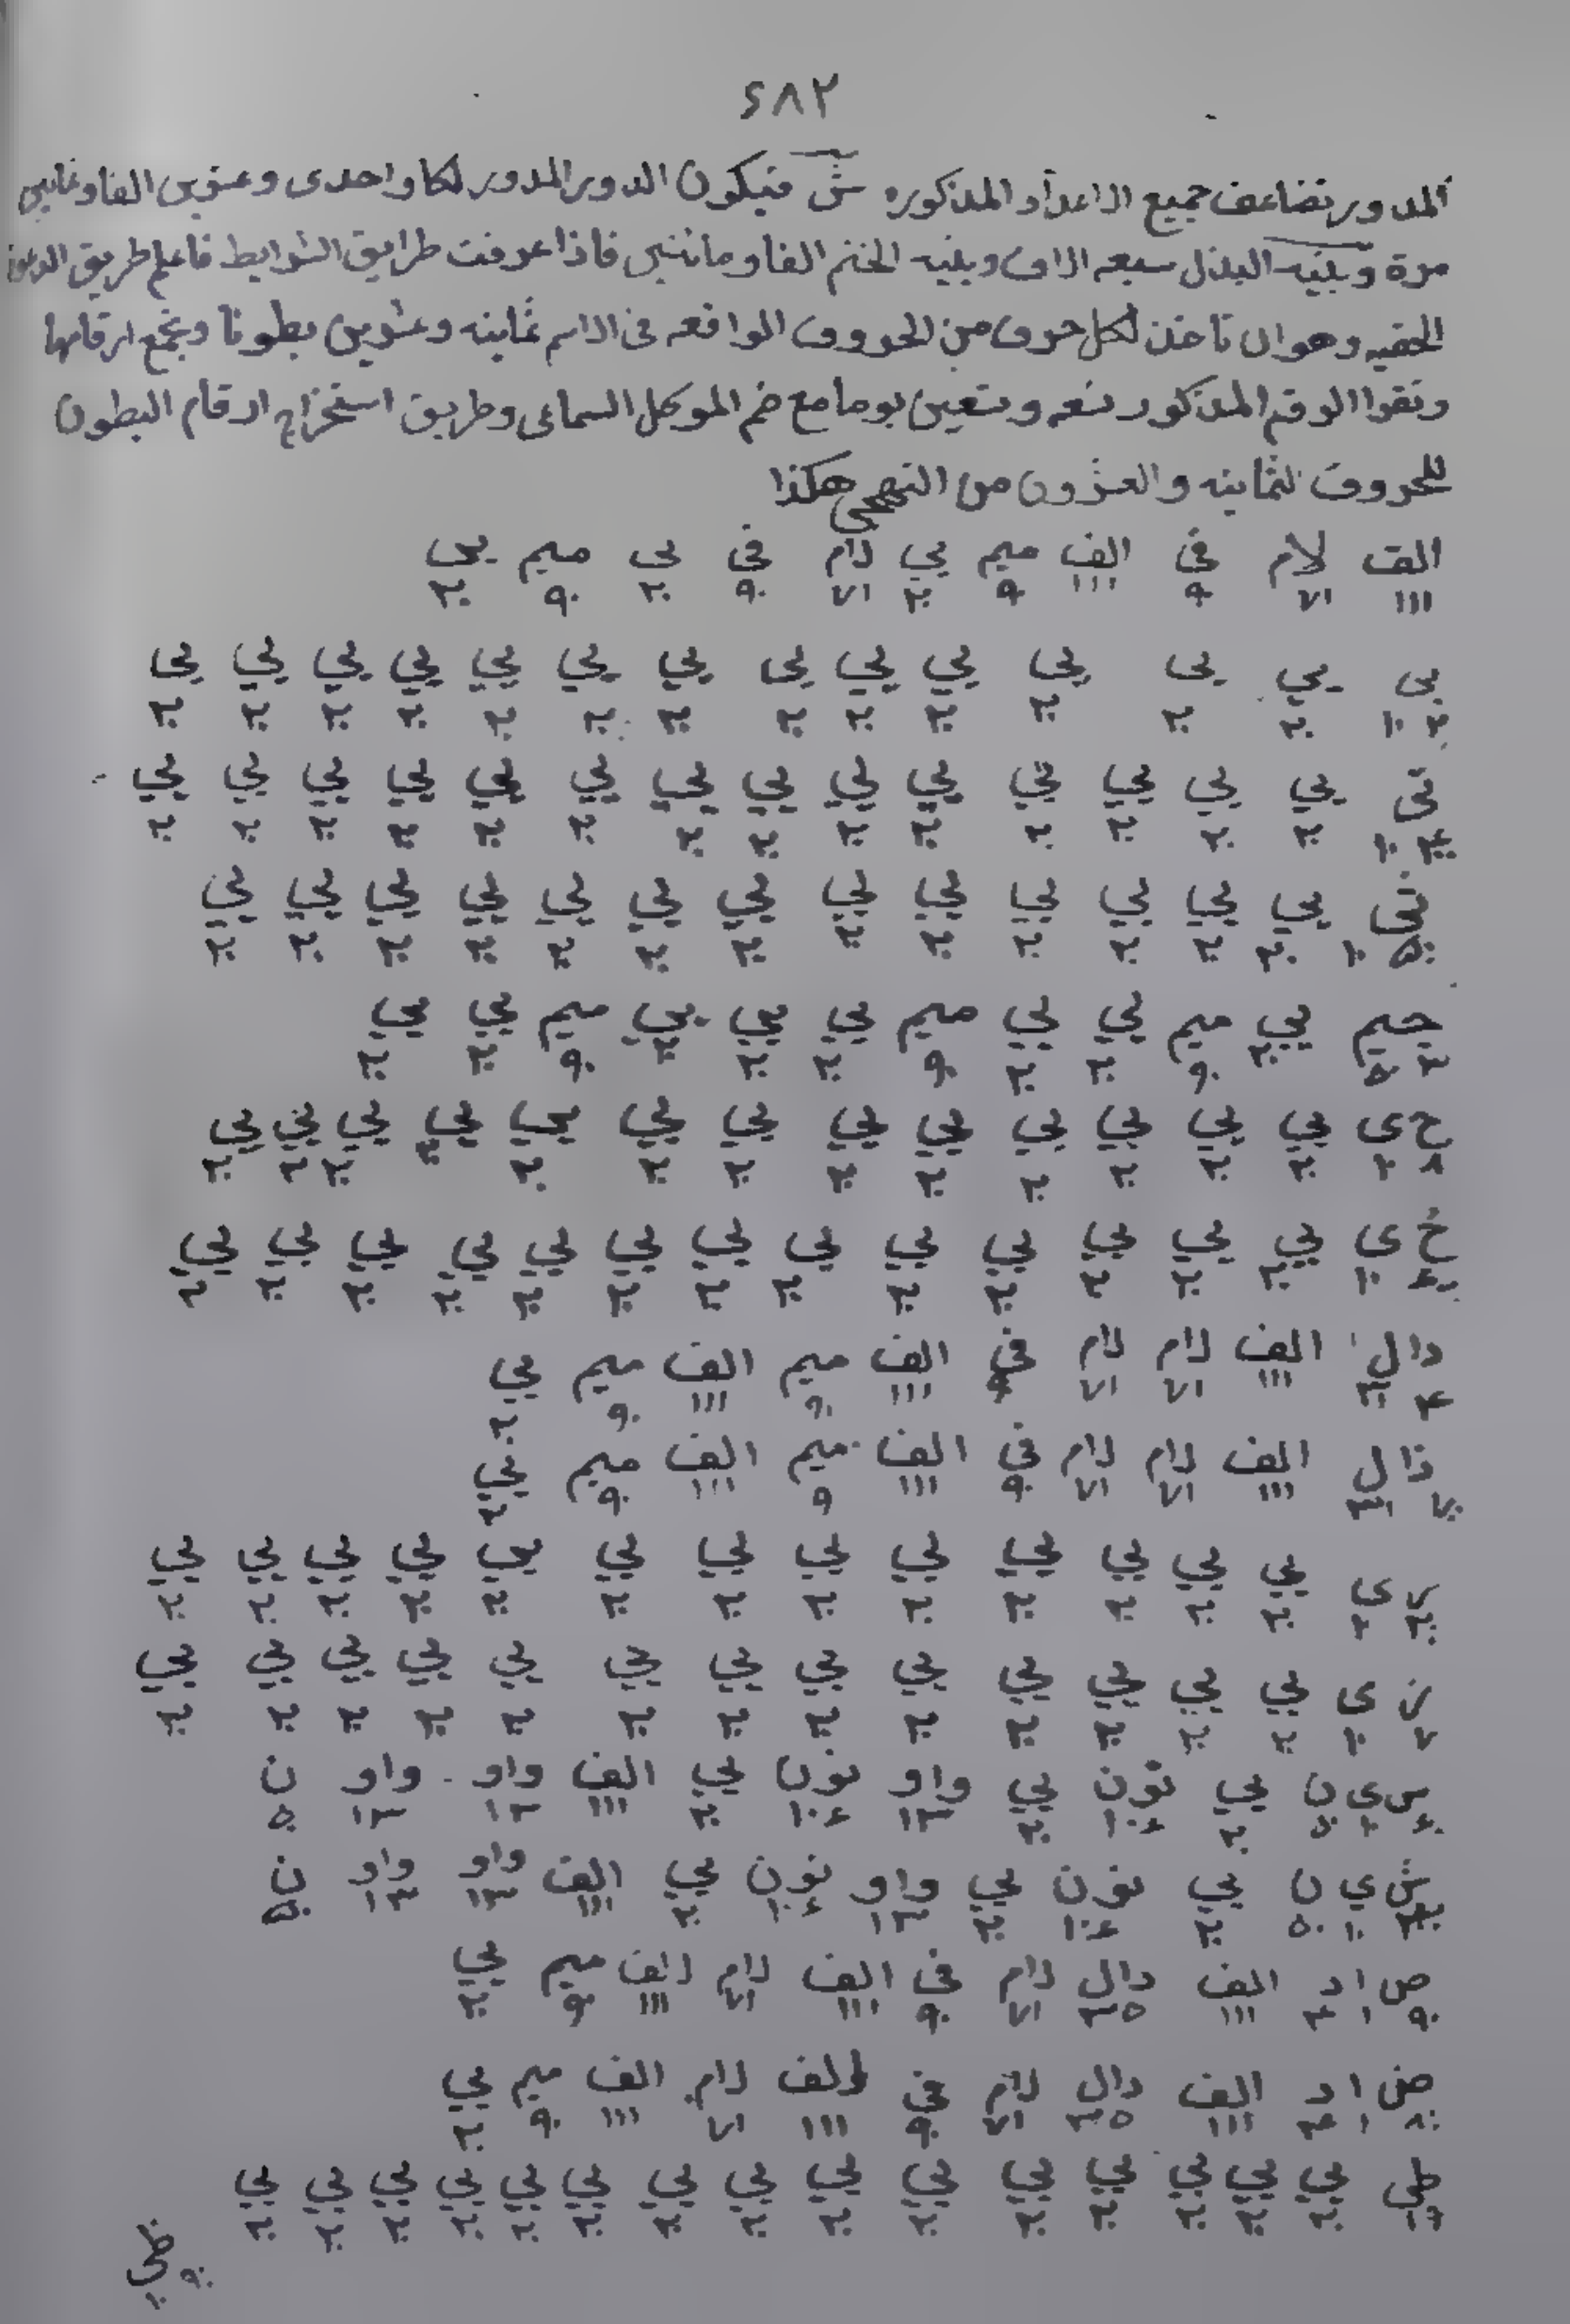 ٤٨٢
المدور تضاعف جميع الاعداد المذكوره ش فيكون الدور المدور لكا واحدى وعشرين الفا وثمانين
مرة وبنيه البذل سبعه الاف وبنيه الختم الفا ومائتين فاذا عرفت طرايق الشرايط فاعلم طريق الدعوة
الحقيه وهو ان تاخذ لكل حرف من الحروف الواقعه فى الاسم ثمانيه وعشرين بطونا وتجمع ارقامها
وتقوا الرقم المذكور تسعه وتسعين يوما مع ضم الموكل السماى وطريق استخراج ارقام البطون
للحروف الثمانيه والعشرون من التهجى هكذا
الف لام في الف ميم يي لام في يي ميم يي
١١١ ٧١ ٩٠ ١١١ ٩٠ ٢٠ ٧١ ٩٠ ٢٠ ٩٠ ٢٠
بى يي يي يي يي يي يي يي يي يي يي يي يي يي
٢ ١٠ ٢٠ ٢٠ ٢٠ ٢٠ ٢٠ ٢٠ ٢٠ ٢٠ ٢٠ ٢٠ ٢٠ ٢٠ ٢٠
تى يي يي يي يي يي يي يي يي يي يي يي يي يي يي
٤٠٠ ١٠ ٢٠ ٢٠ ٢٠ ٢٠ ٢٠ ٢٠ ٢٠ ٢٠ ٢٠ ٢٠ ٢٠ ٢٠ ٢٠ ٢٠
ثى يي يي يي يي يي يي يي يي يي يي يي يي يي
١٠ ٢٠ ٢٠ ٢٠ ٢٠ ٢٠ ٢٠ ٢٠ ٢٠ ٢٠ ٢٠ ٢٠ ٢٠ ٢٠
جيم يي ميم يي يي ميم يي يي يي ميم يي يي
٣ ٥٠ ٢٠ ٩٠ ٢٠ ٢٠ ٩٠ ٢٠ ٢٠ ٢٠ ٩٠ ٢٠ ٢٠
ح ى يي يي يي يي يي يي يي يي يي يي يي يي يي
٨ ١٠ ٢٠ ٢٠ ٢٠ ٢٠ ٢٠ ٢٠ ٢٠ ٢٠ ٢٠ ٢٠ ٢٠ ٢٠ ٢٠
خ ى يي يي يي يي يي يي يي يي يي يي يي يي يي
٦٠٠ ١٠ ٢٠ ٢٠ ٢٠ ٢٠ ٢٠ ٢٠ ٢٠ ٢٠ ٢٠ ٢٠ ٢٠ ٢٠ ٢٠
دال الف لام لام في الف ميم الف ميم يي
٤ ٣١ ١١١ ٧١ ٧١ ٩٠ ١١١ ٩٠ ١١١ ٩٠ ٢٠
ذال الف لام لام في الف ميم الف ميم يي
٧٠٠ ٣١ ١١١ ٧١ ٧١ ٩٠ ١١١ ٩٠ ١١١ ٩٠ ٢٠
ر ى يي يي يي يي يي يي يي يي يي يي يي يي يي
٢٠٠ ١٠ ٢٠ ٢٠ ٢٠ ٢٠ ٢٠ ٢٠ ٢٠ ٢٠ ٢٠ ٢٠ ٢٠ ٢٠ ٢٠
ز ى يي يي يي يي يي يي يي يي يي يي يي يي يي
٧ ١٠ ٢٠ ٢٠ ٢٠ ٢٠ ٢٠ ٢٠ ٢٠ ٢٠ ٢٠ ٢٠ ٢٠ ٢٠ ٢٠
س ى ن يي نون يي واو نون يي الف واو واو ن
٦٠ ١٠ ٥٠ ٢٠ ١٠٦ ٢٠ ١٣ ١٠٦ ٢٠ ١١١ ١٣ ١٣ ٥٠
ش ى ن يي نون يي واو نون يي الف واو واو ن
٣٠٠ ١٠ ٥٠ ٢٠ ١٠٦ ٢٠ ١٣ ١٠٦ ٢٠ ١١١ ١٣ ١٣ ٥٠
ص ا د الف دال لام في الف لام الف ميم يي
٩٠ ١ ٤ ١١١ ٣٥ ٧١ ٩٠ ١١١ ٧١ ١١١ ٩٠ ٢٠
ض ا د الف دال لام في الف لام الف ميم يي
٨٠٠ ١ ٤ ١١١ ٣٥ ٧١ ٩٠ ١١١ ٧١ ١١١ ٩٠ ٢٠
طى يي يي يي يي يي يي يي يي يي يي يي يي يي يي
١٩ ٢٠ ٢٠ ٢٠ ٢٠ ٢٠ ٢٠ ٢٠ ٢٠ ٢٠ ٢٠ ٢٠ ٢٠ ٢٠ ٢٠
ظى
٩٠٠ ١٠